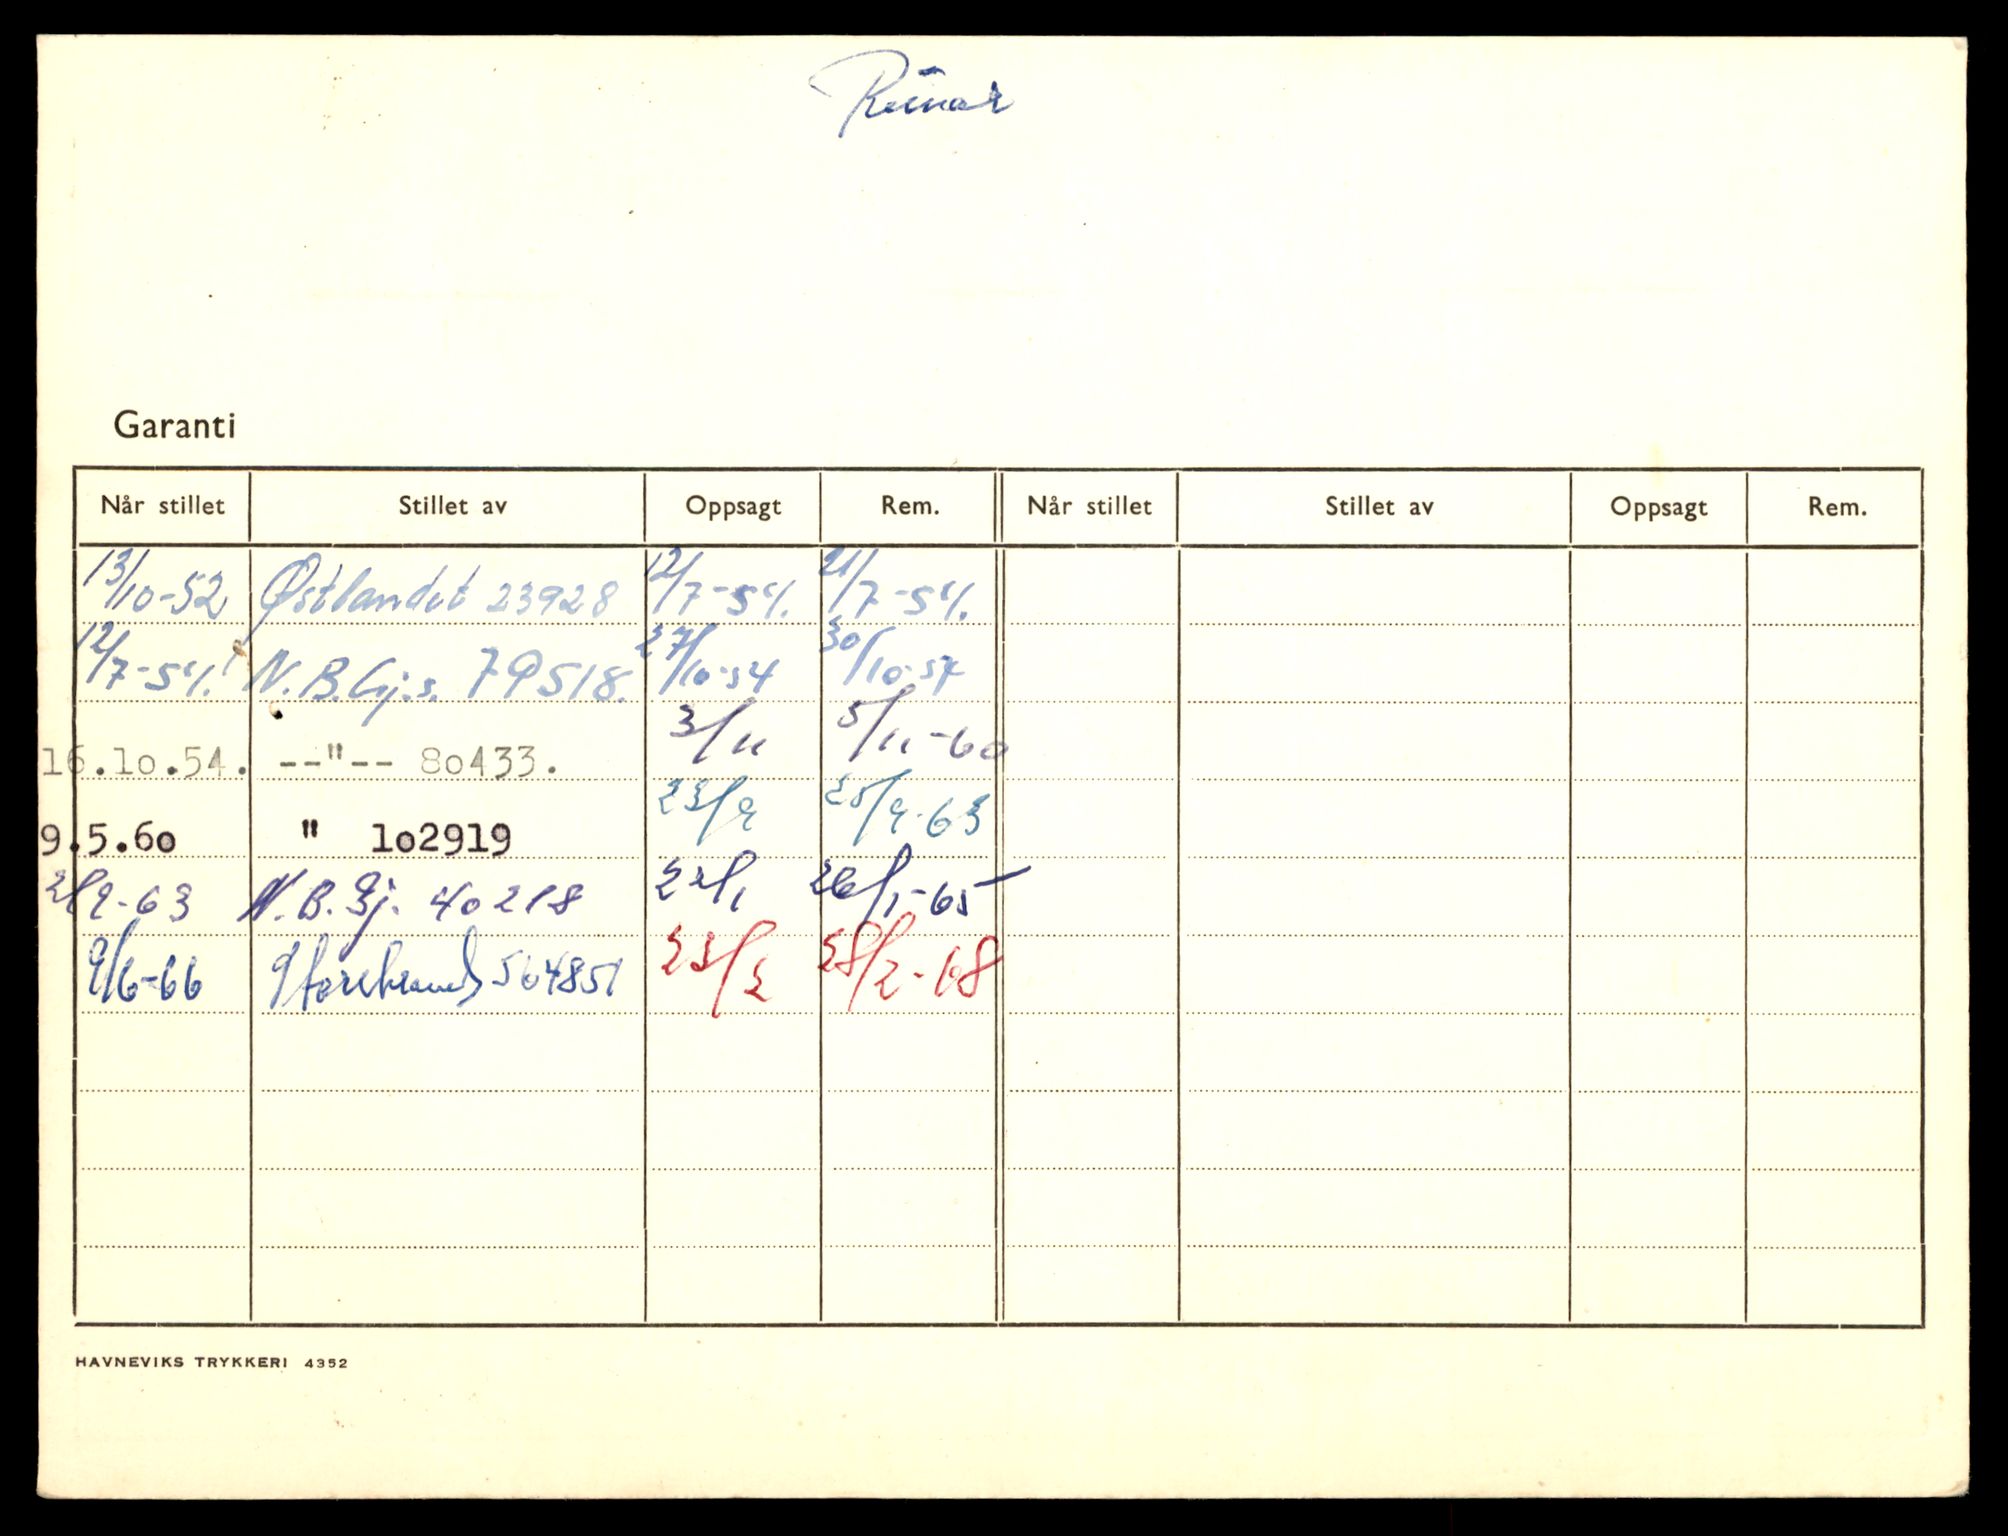 Reinar
Garanti
Når stillet Stillet av Oppsagt Rem. Når stillet Stillet av Oppsagt Rem.
13/10-52 Østlandet 23928 12/7-54. 21/7-54.
12/7-54. N.B.Gj.s. 79518. 27/10-54 30/10-54
16.10.54. --"-- 80433. 3/11 5/11-60
9.5.60 " 102919 23/9 25/9-63
2/9-63 N.B.Gj. 40218 22/1 26/1-65
9/6-66 Storebrand 564851 23/2 28/2-68
HAVNEVIKS TRYKKERI 4352